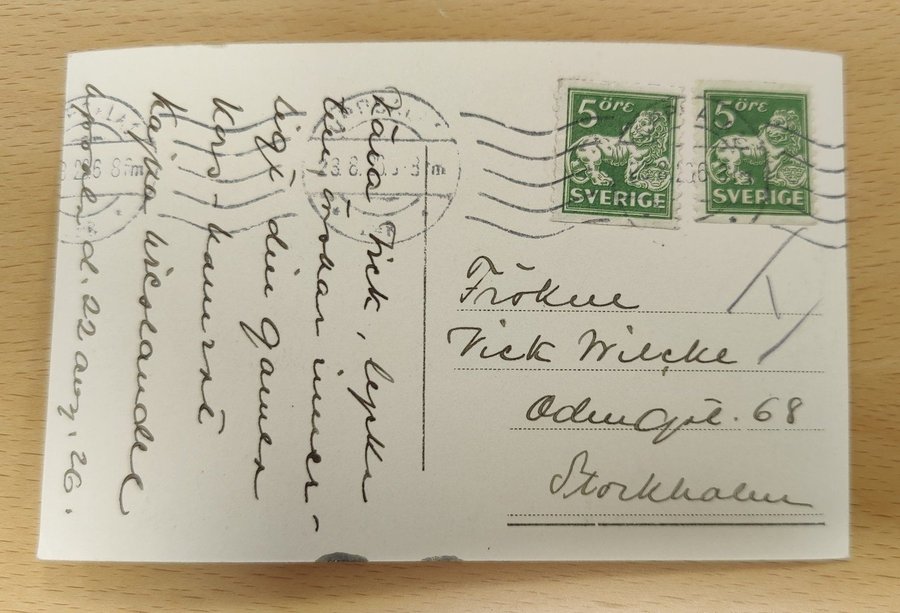 Kära Vick, lycka
till önskar inner-
ligt din gamer
Kors-kamrat
Kajsa
Upsala d. 22 aug. 26.
5 ÖRE
SVERIGE
5 ÖRE
SVERIGE
Fröken
Vick Wilcke
Odensgat. 68
Stockholm